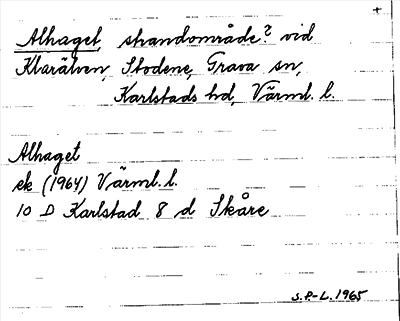 +
Alhaget, strandområde? vid
Klarälven, Stodene, Grava sn,
Karlstads hd, Värml. l.
Alhaget
ek (1964) Värml. l.
10 D Karlstad 8 d Skåre
S.P-L. 1965